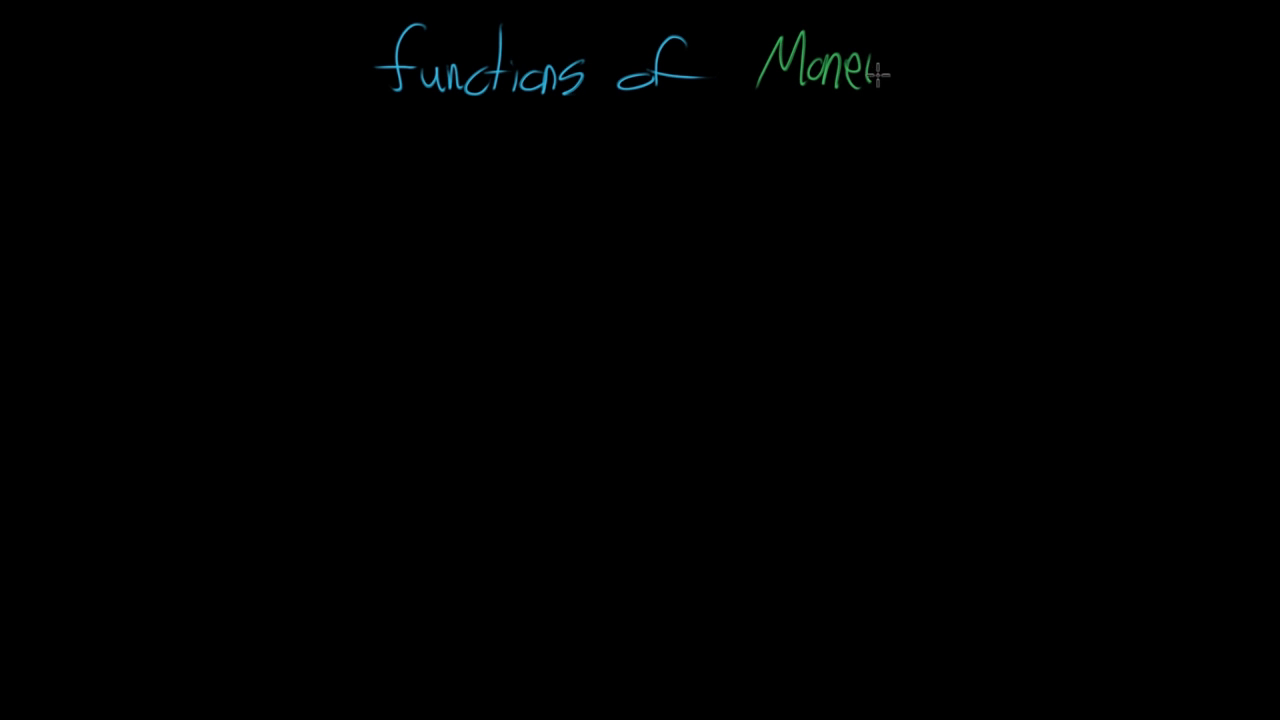 functions of Money